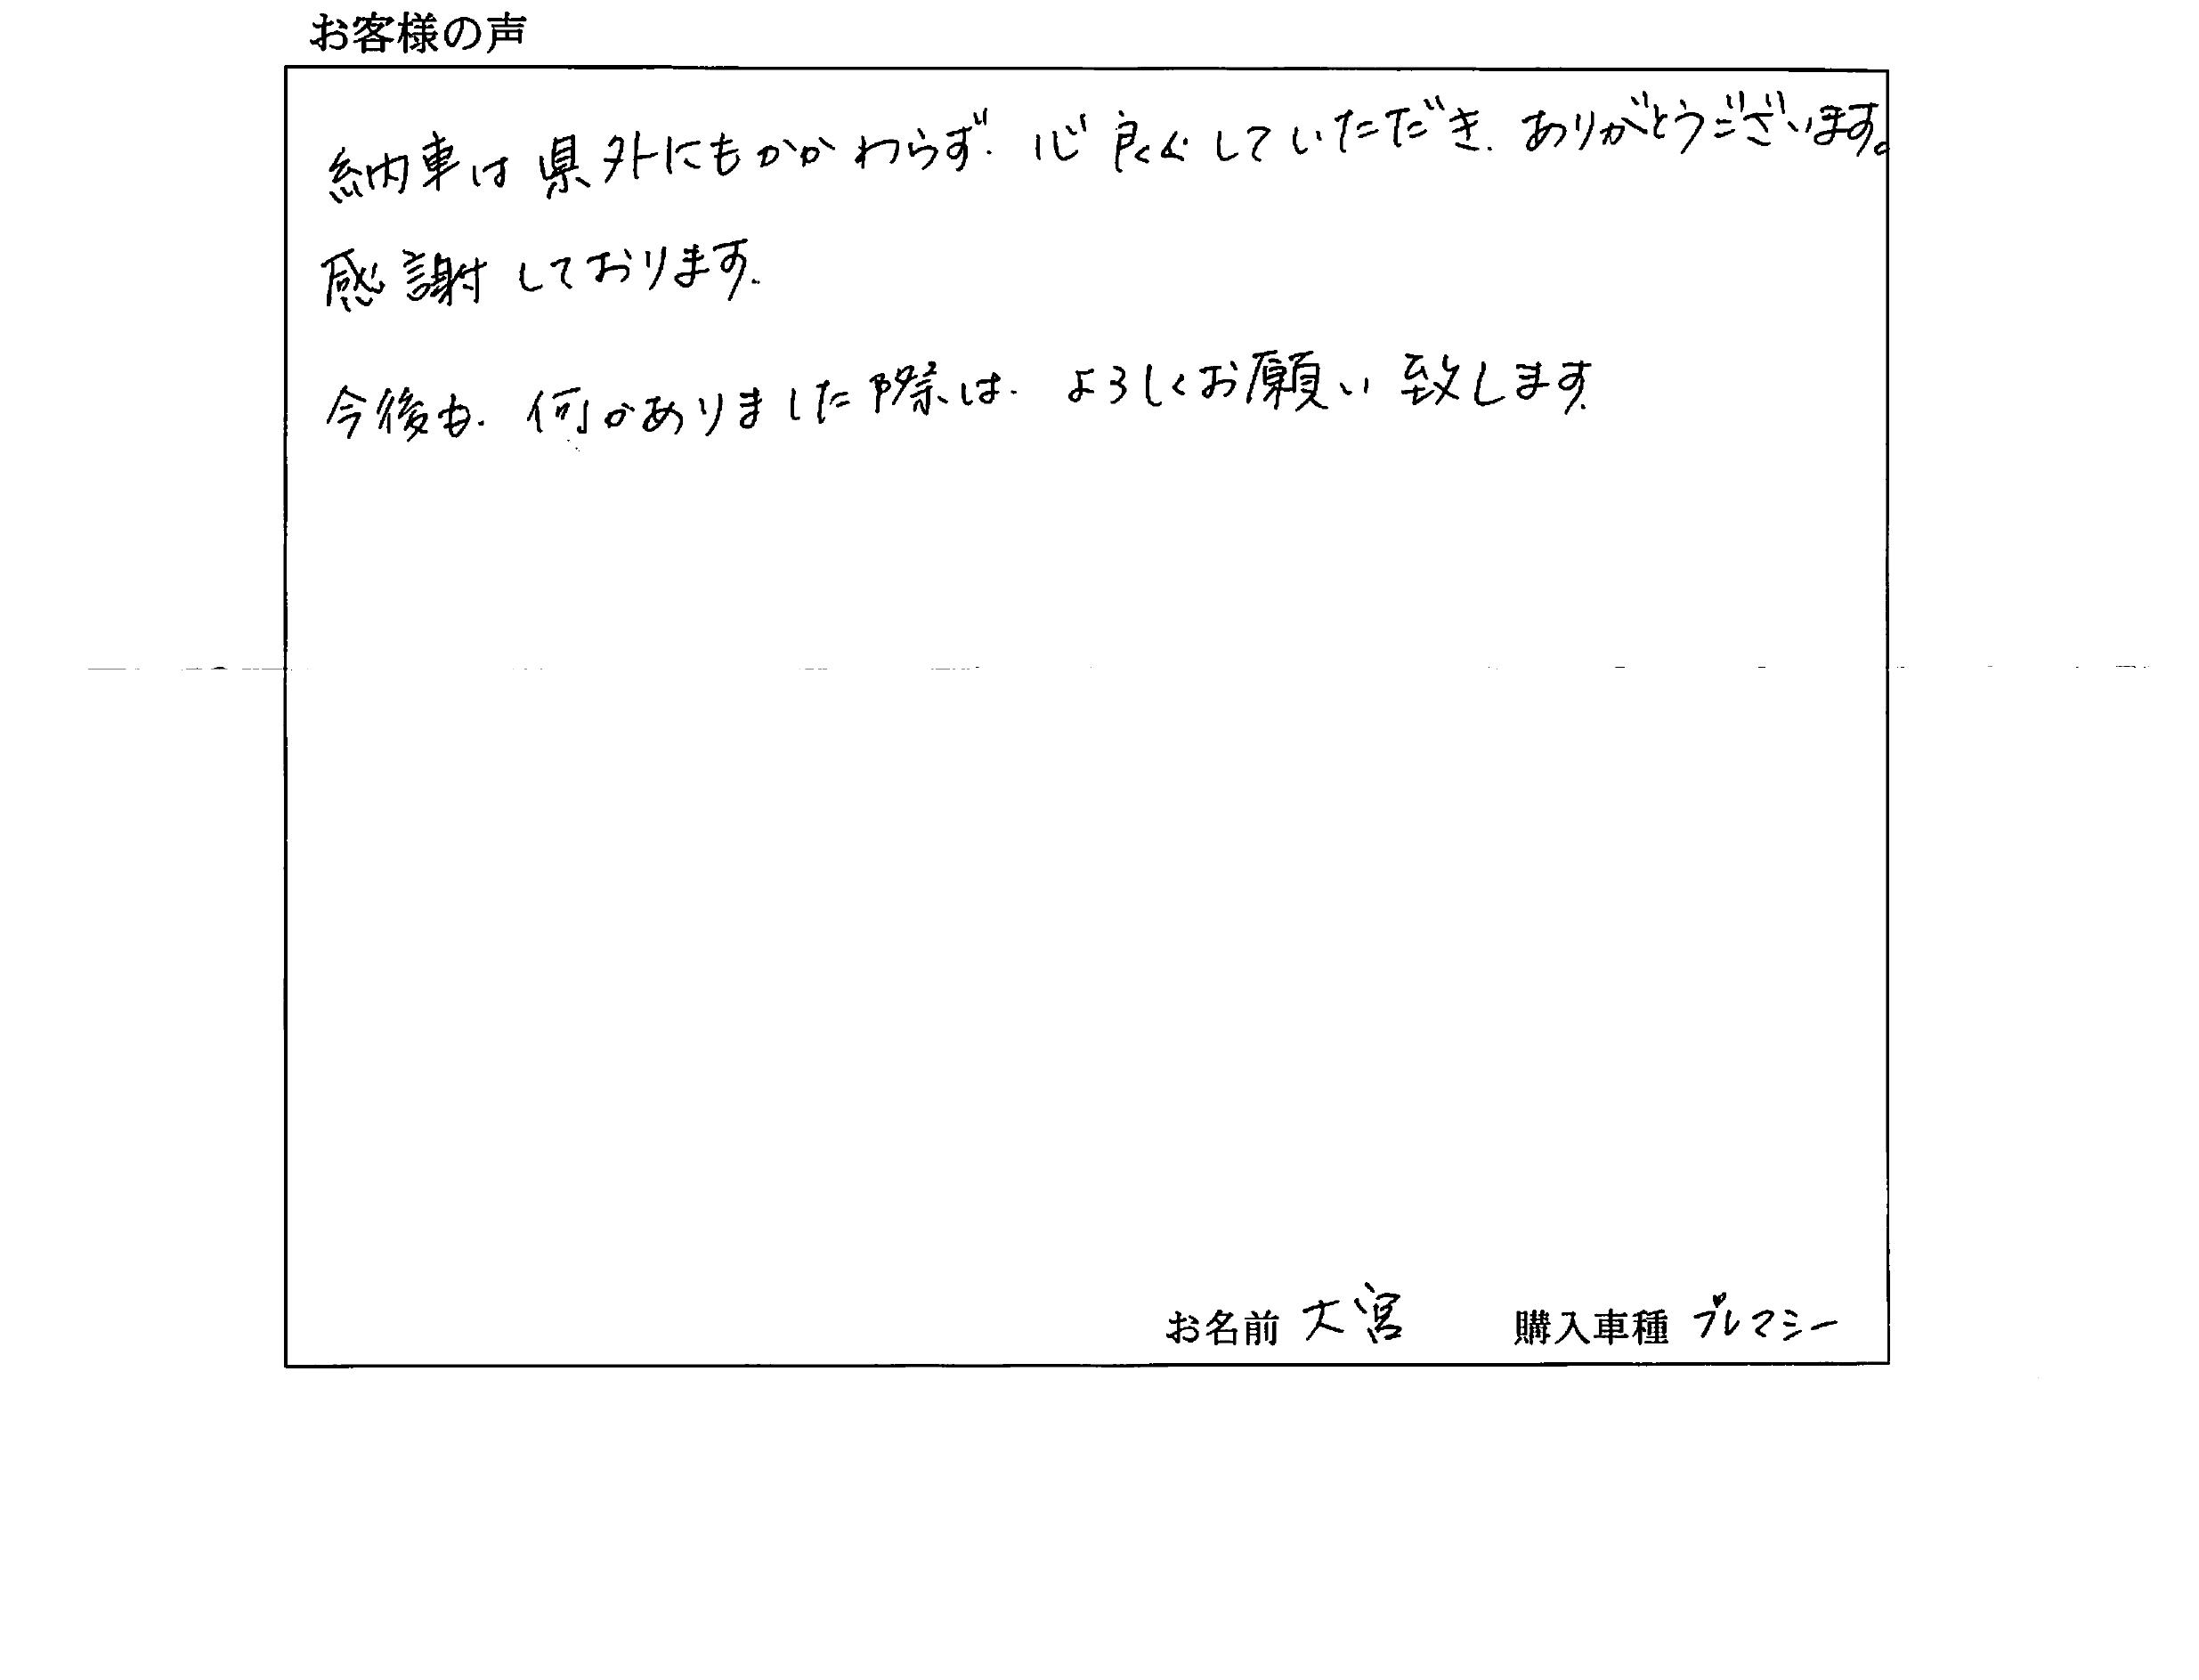 お客様の声
納車は県外にもかかわらず、心良くしていただき、ありがとうございます。
感謝しております。
今後も、何かありました際は、よろしくお願い致します。
お名前 大宮 購入車種 プレマシー